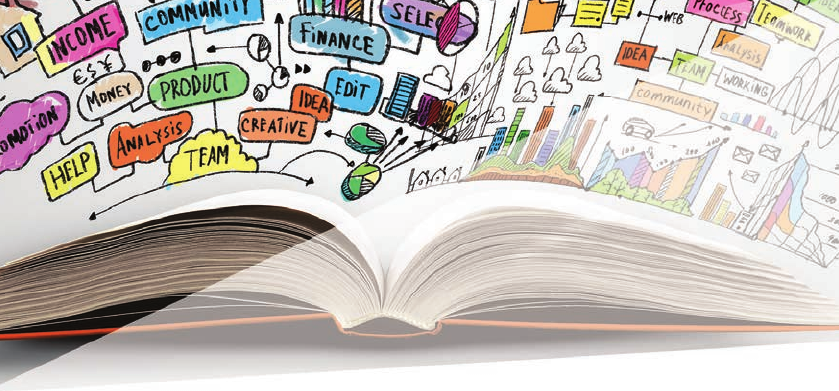 COMMUNITY
SELE
PROCESS
TEAMWORK
INCOME
FINANCE
WEB
€ $ ¥
IDEA
ANALYSIS
MONEY
PRODUCT
EDIT
TEAM
WORKING
IDEA
community
OMOTION
ANALYSIS
CREATIVE
HELP
TEAM